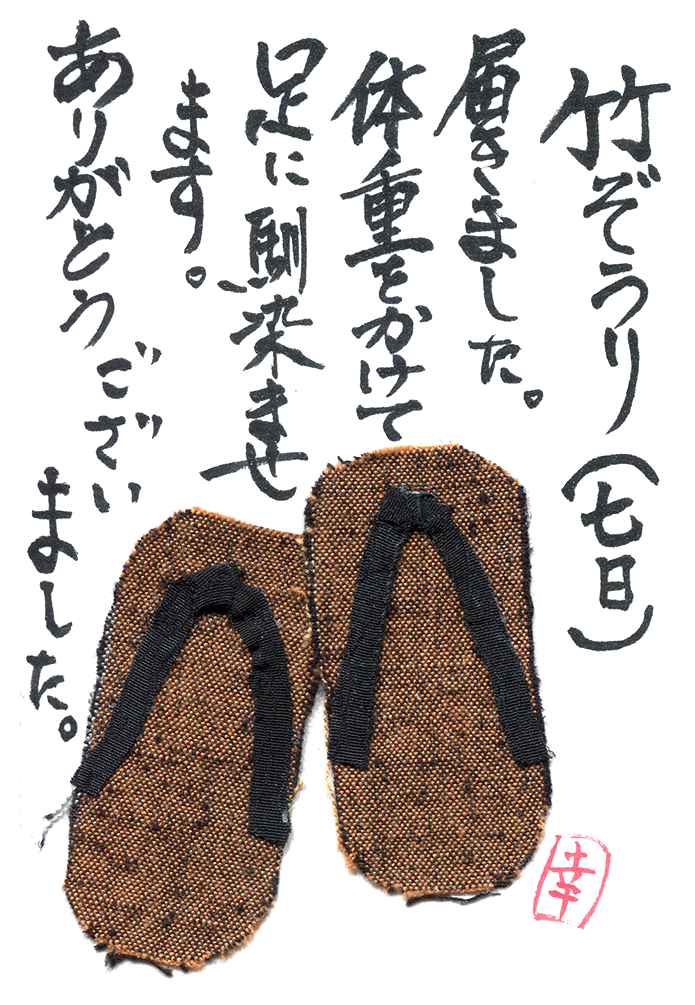 竹ぞうり(七日)
届きました。
体重をかけて
足に馴染ませ
ます。
ありがとう
ござい
ました。
幸